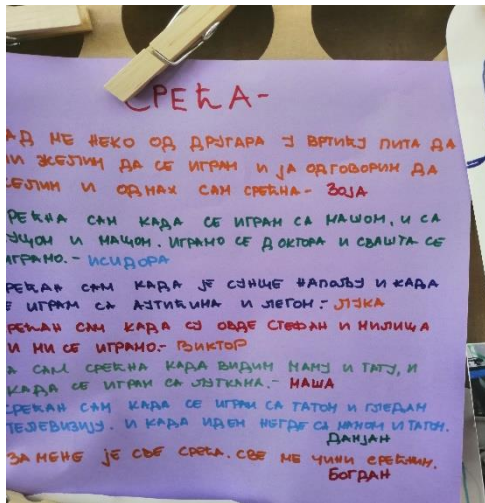 СРЕЋА-
АД МЕ НЕКО ОД ДРУГАРА У ВРТИЋУ ПИТА ДА
ЛИ ЖЕЛИМ ДА СЕ ИГРАМ И ЈА ОДГОВОРИМ ДА
ЖЕЛИМ И ОДМАХ САМ СРЕЋНА- ЗОЈА
РЕЋНА САМ КАДА СЕ ИГРАМ СА МАШОМ, И СА
УЦОМ И МАЦОМ. ИГРАМО СЕ ДОКТОРА И СВАШТА СЕ
ИГРАМО.- ИСИДОРА
РЕЋАН САМ КАДА ЈЕ СУНЦЕ НАПОЉУ И КАДА
Е ИГРАМ СА АУТИЋИМА И ЛЕГОМ.- ЛУКА
РЕЋАН САМ КАДА СУ ОВДЕ СТЕФАН И МИЛИЦА
И МИ СЕ ИГРАМО.- ВИКТОР
А САМ СРЕЋНА КАДА ВИДИМ МАМУ И ТАТУ, И
КАДА СЕ ИГРАМ СА ЛУТКАМА.- МАША
СРЕЋАН САМ КАДА СЕ ИГРАМ СА ТАТОМ И ГЛЕДАМ
ТЕЛЕВИЗИЈУ. И КАДА ИДЕМ НЕГДЕ СА МАМОМ И ТАТОМ.
ДАМЈАН
ЗА МЕНЕ ЈЕ СВЕ СРЕЋА. СВЕ МЕ ЧИНИ СРЕЋНИМ.
БОГДАН